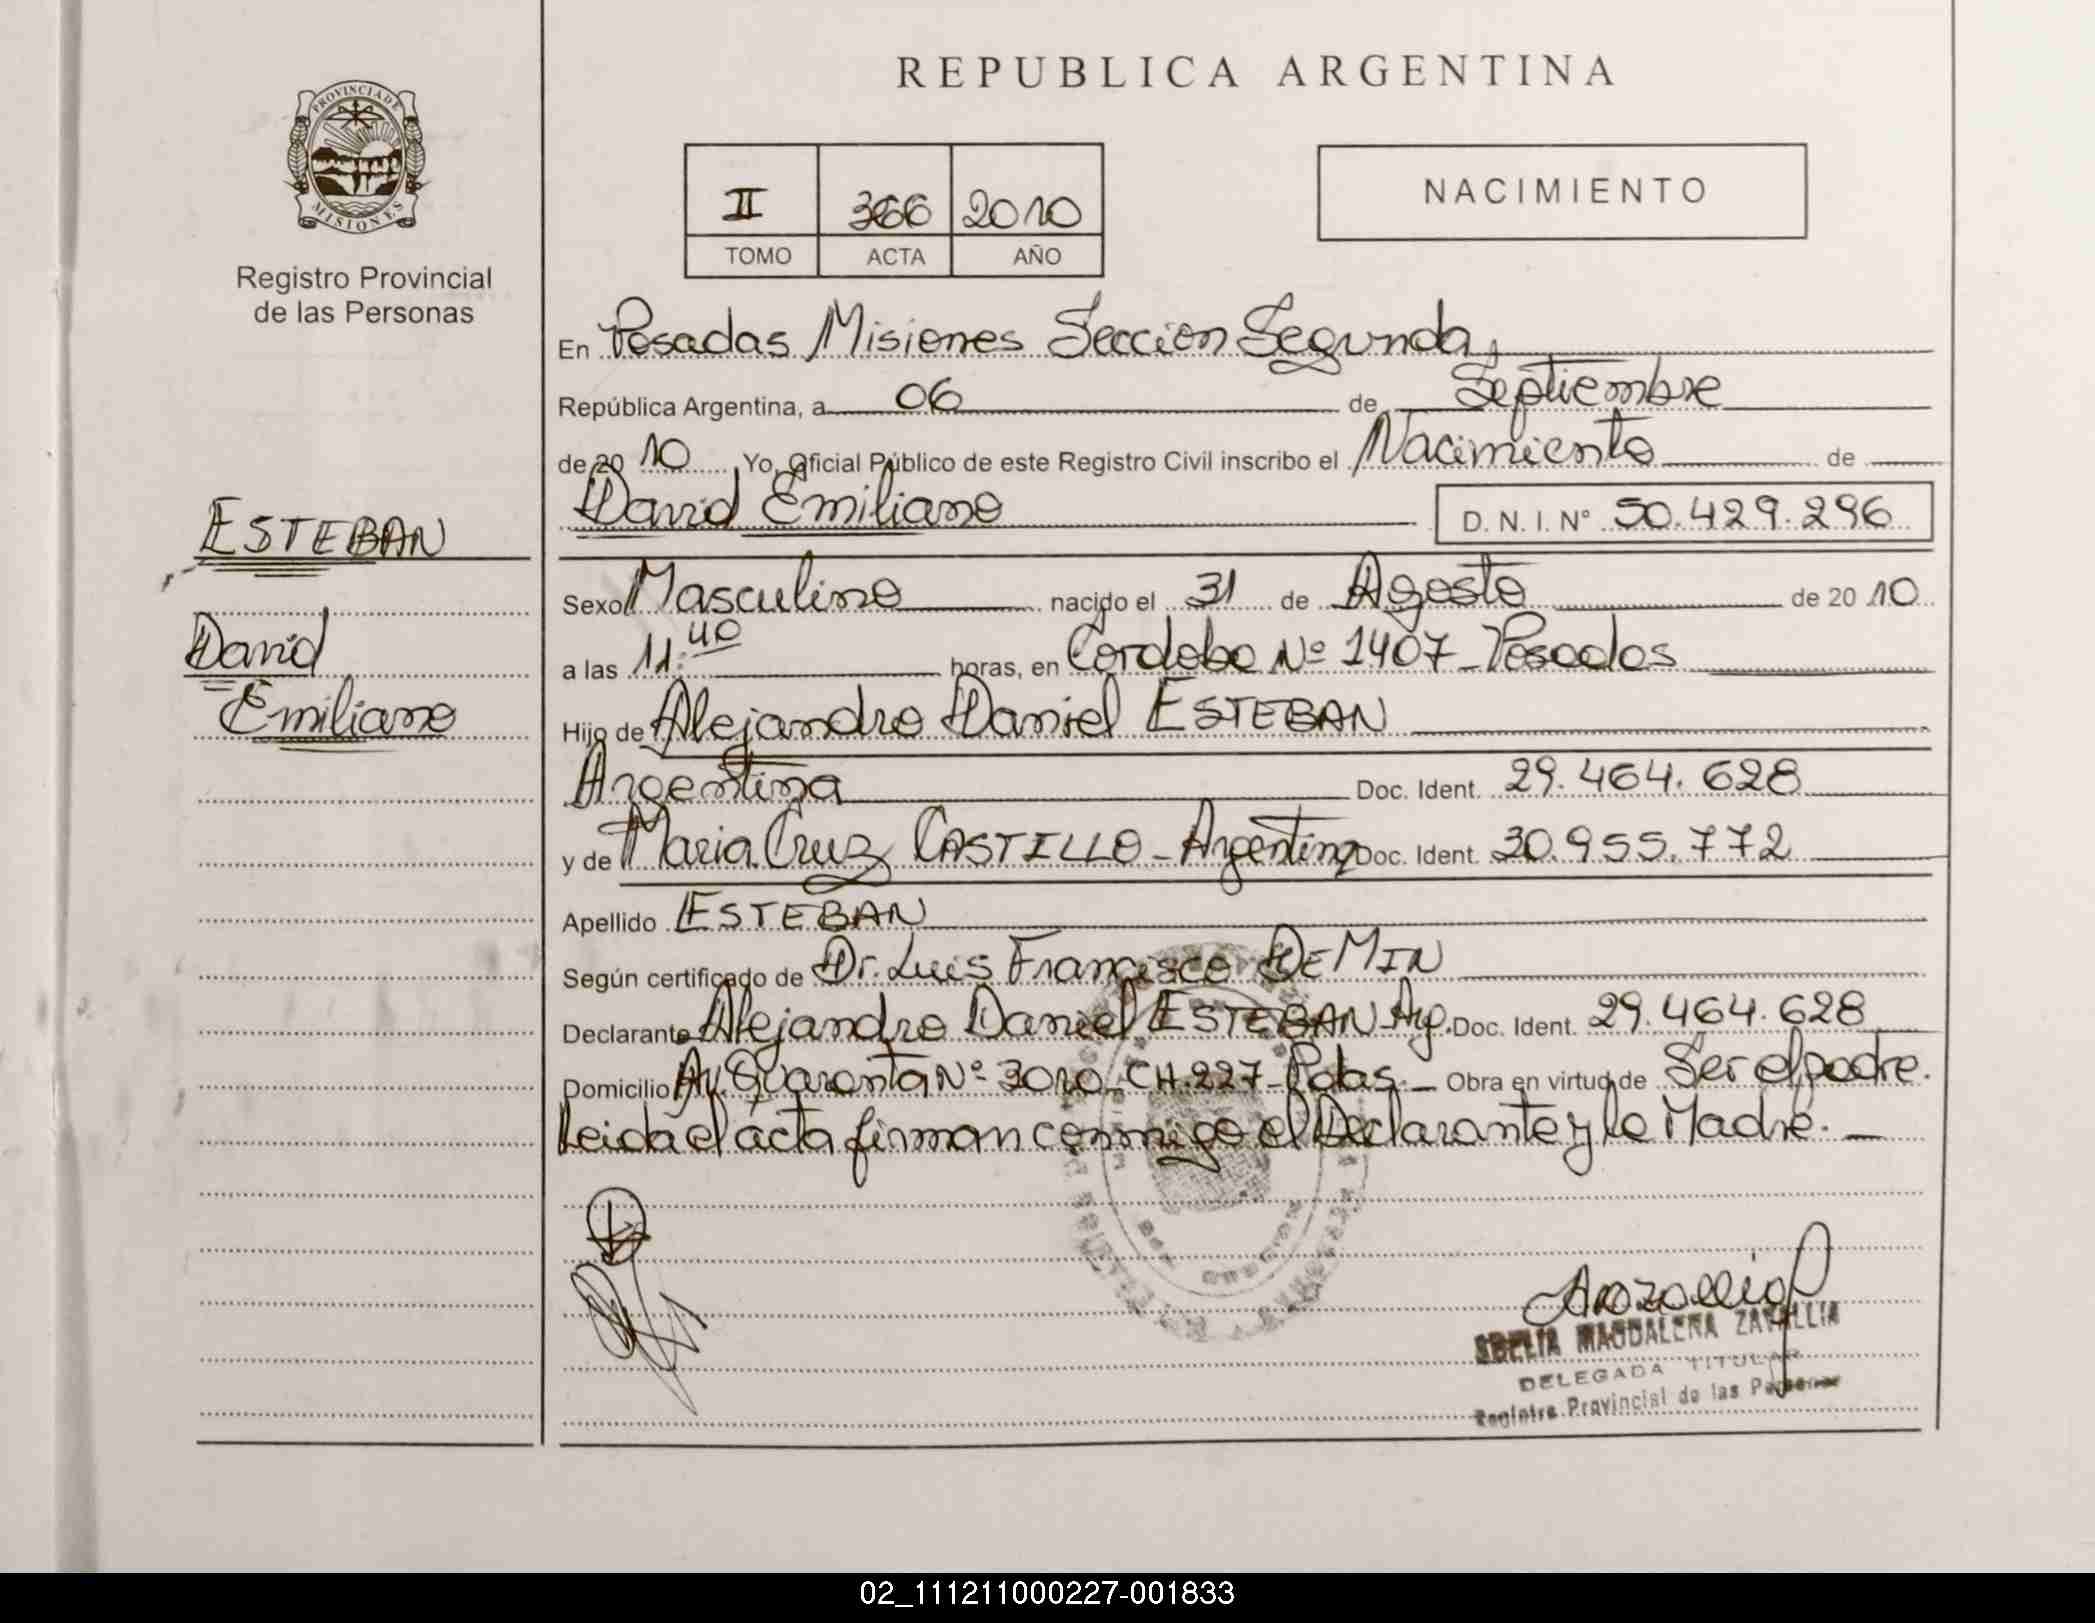 REPUBLICA ARGENTINA
PROVINCIA DE
MISIONES
Registro Provincial
de las Personas
II 366 2010
TOMO ACTA AÑO
NACIMIENTO
En Posadas Misiones Seccion Segunda,
República Argentina, a 06 de Septiembre
de 2010 Yo, Oficial Público de este Registro Civil inscribo el Nacimiento de
David Emiliano D. N. I. Nº 50.429.296
ESTEBAN
David
Emiliano
Sexo Masculino nacido el 31 de Agosto de 2010
a las 11:40 horas, en Cordoba Nº 1407 - Posadas
Hijo de Alejandro Daniel ESTEBAN
Argentina Doc. Ident. 29.464.628
y de Maria Cruz CASTILLO - Argentina Doc. Ident. 30.955.772
Apellido ESTEBAN
Según certificado de Dr. Luis Francisco DE MIN
Declarante Alejandro Daniel ESTEBAN - Arg. Doc. Ident. 29.464.628
Domicilio Av. Quaranta Nº 3020 - CH. 227 - Pdas. - Obra en virtud de Ser el padre.
Leida el acta firman conmigo el Declarante y la Madre. -
MAGDALENA ZAVALLIA
DELEGADA TITULAR
Registro Provincial de las Personas
02_111211000227-001833